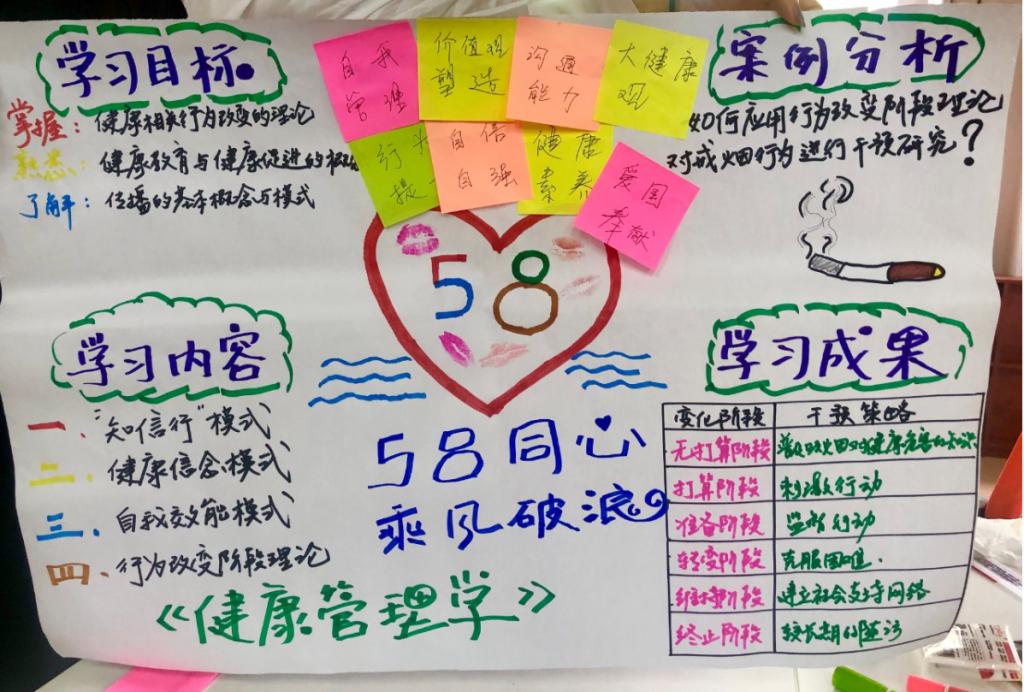 学习目标
掌握：健康相关行为改变的理论
熟悉：健康教育与健康促进的概
了解：传播的基本概念与模式
自我
管理
价值观
塑造
沟通
能力
大健康
观
行
提
自信
自强
健康
素养
爱国
奉献
案例分析
如何应用行为改变阶段理论
对戒烟行为进行干预研究？
58
学习内容
一、“知信行”模式
二、健康信念模式
三、自我效能模式
四、行为改变阶段理论
58同心
乘风破浪
《健康管理学》
学习成果
变化阶段 干预策略
无打算阶段
打算阶段 刺激行动
准备阶段 监督行动
转变阶段 克服困难.
维持阶段 建立社会支持网络
终止阶段 较长期的随访